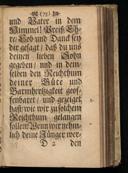 (75)
und Vater in dem
Himmel/ Preiß/Eh-
re/Lob und Danck sey
dir gesagt/ daß du uns
deinen lieben Sohn
gegeben/ und in dem-
selben den Reichthum
deiner Güte und
Barmhertzigkeit geof-
fenbaret/ und gezeiget
hast: wie wir zu solchem
Reichthum gelangen
sollen: Wenn wir nehm-
lich deine Jünger wer-
D 2 den